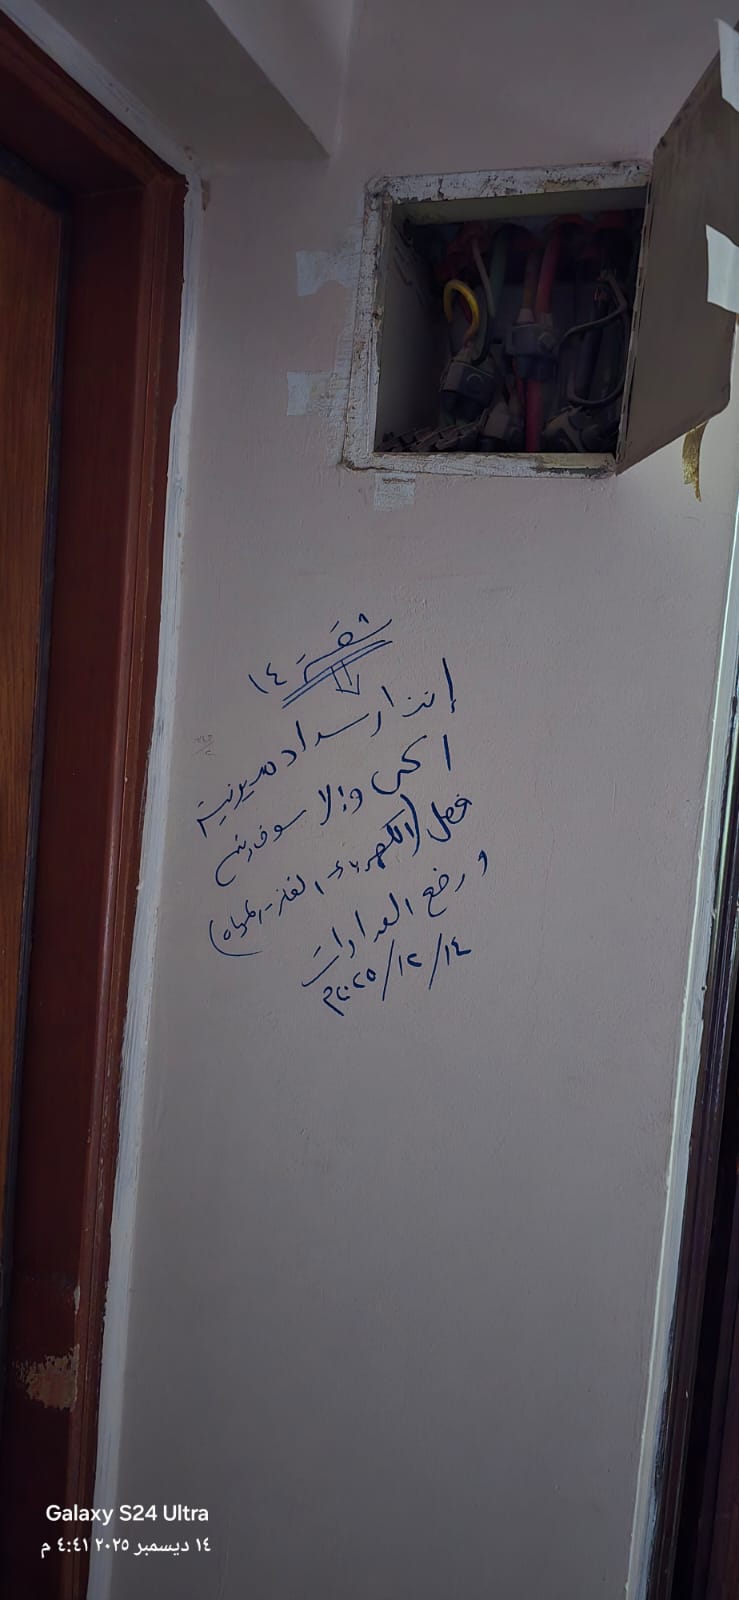 شقة ١٤
إنذار سداد مديونية
الحى وإلا سوف يتم
فصل (الكهرباء - الغاز - المياه)
ورفع العدادات
١٤/١٢/٢٠٢٥م
Galaxy S24 Ultra
١٤ ديسمبر ٢٠٢٥ ٤:٤١ م